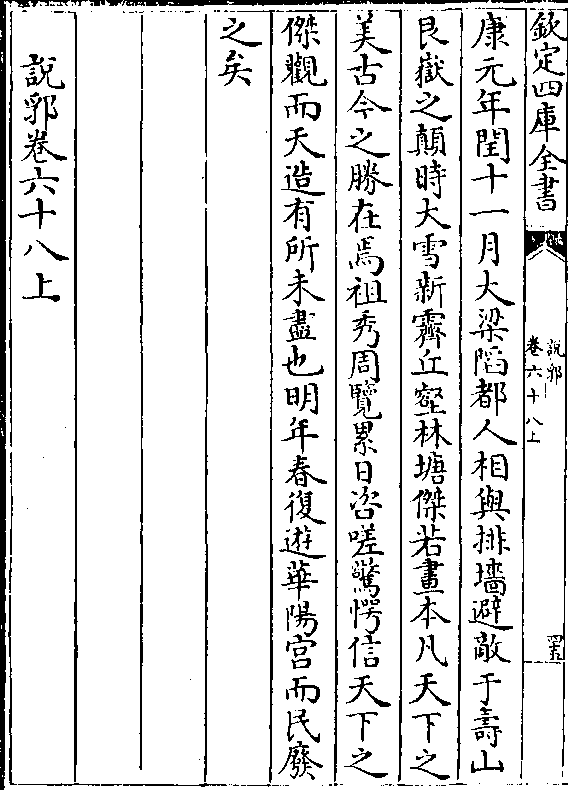 欽定四庫全書
說郛
卷六十八上
康元年閏十一月大梁䧟都人相與排墻避敵于壽山
艮嶽之顛時大雪新霽丘壑林塘傑若畫本凡天下之
美古今之勝在焉祖秀周覽累日咨嗟驚愕信天下之
傑觀而天造有所未盡也明年春復遊華陽宮而民廢
之矣
說郛卷六十八上